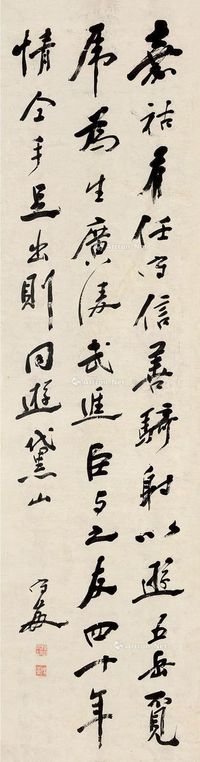 嘉祐有任守信善騎射以遊五岳覓
虎為生廣陵武進臣与之友四十年
情仝手足出則同遊黛山